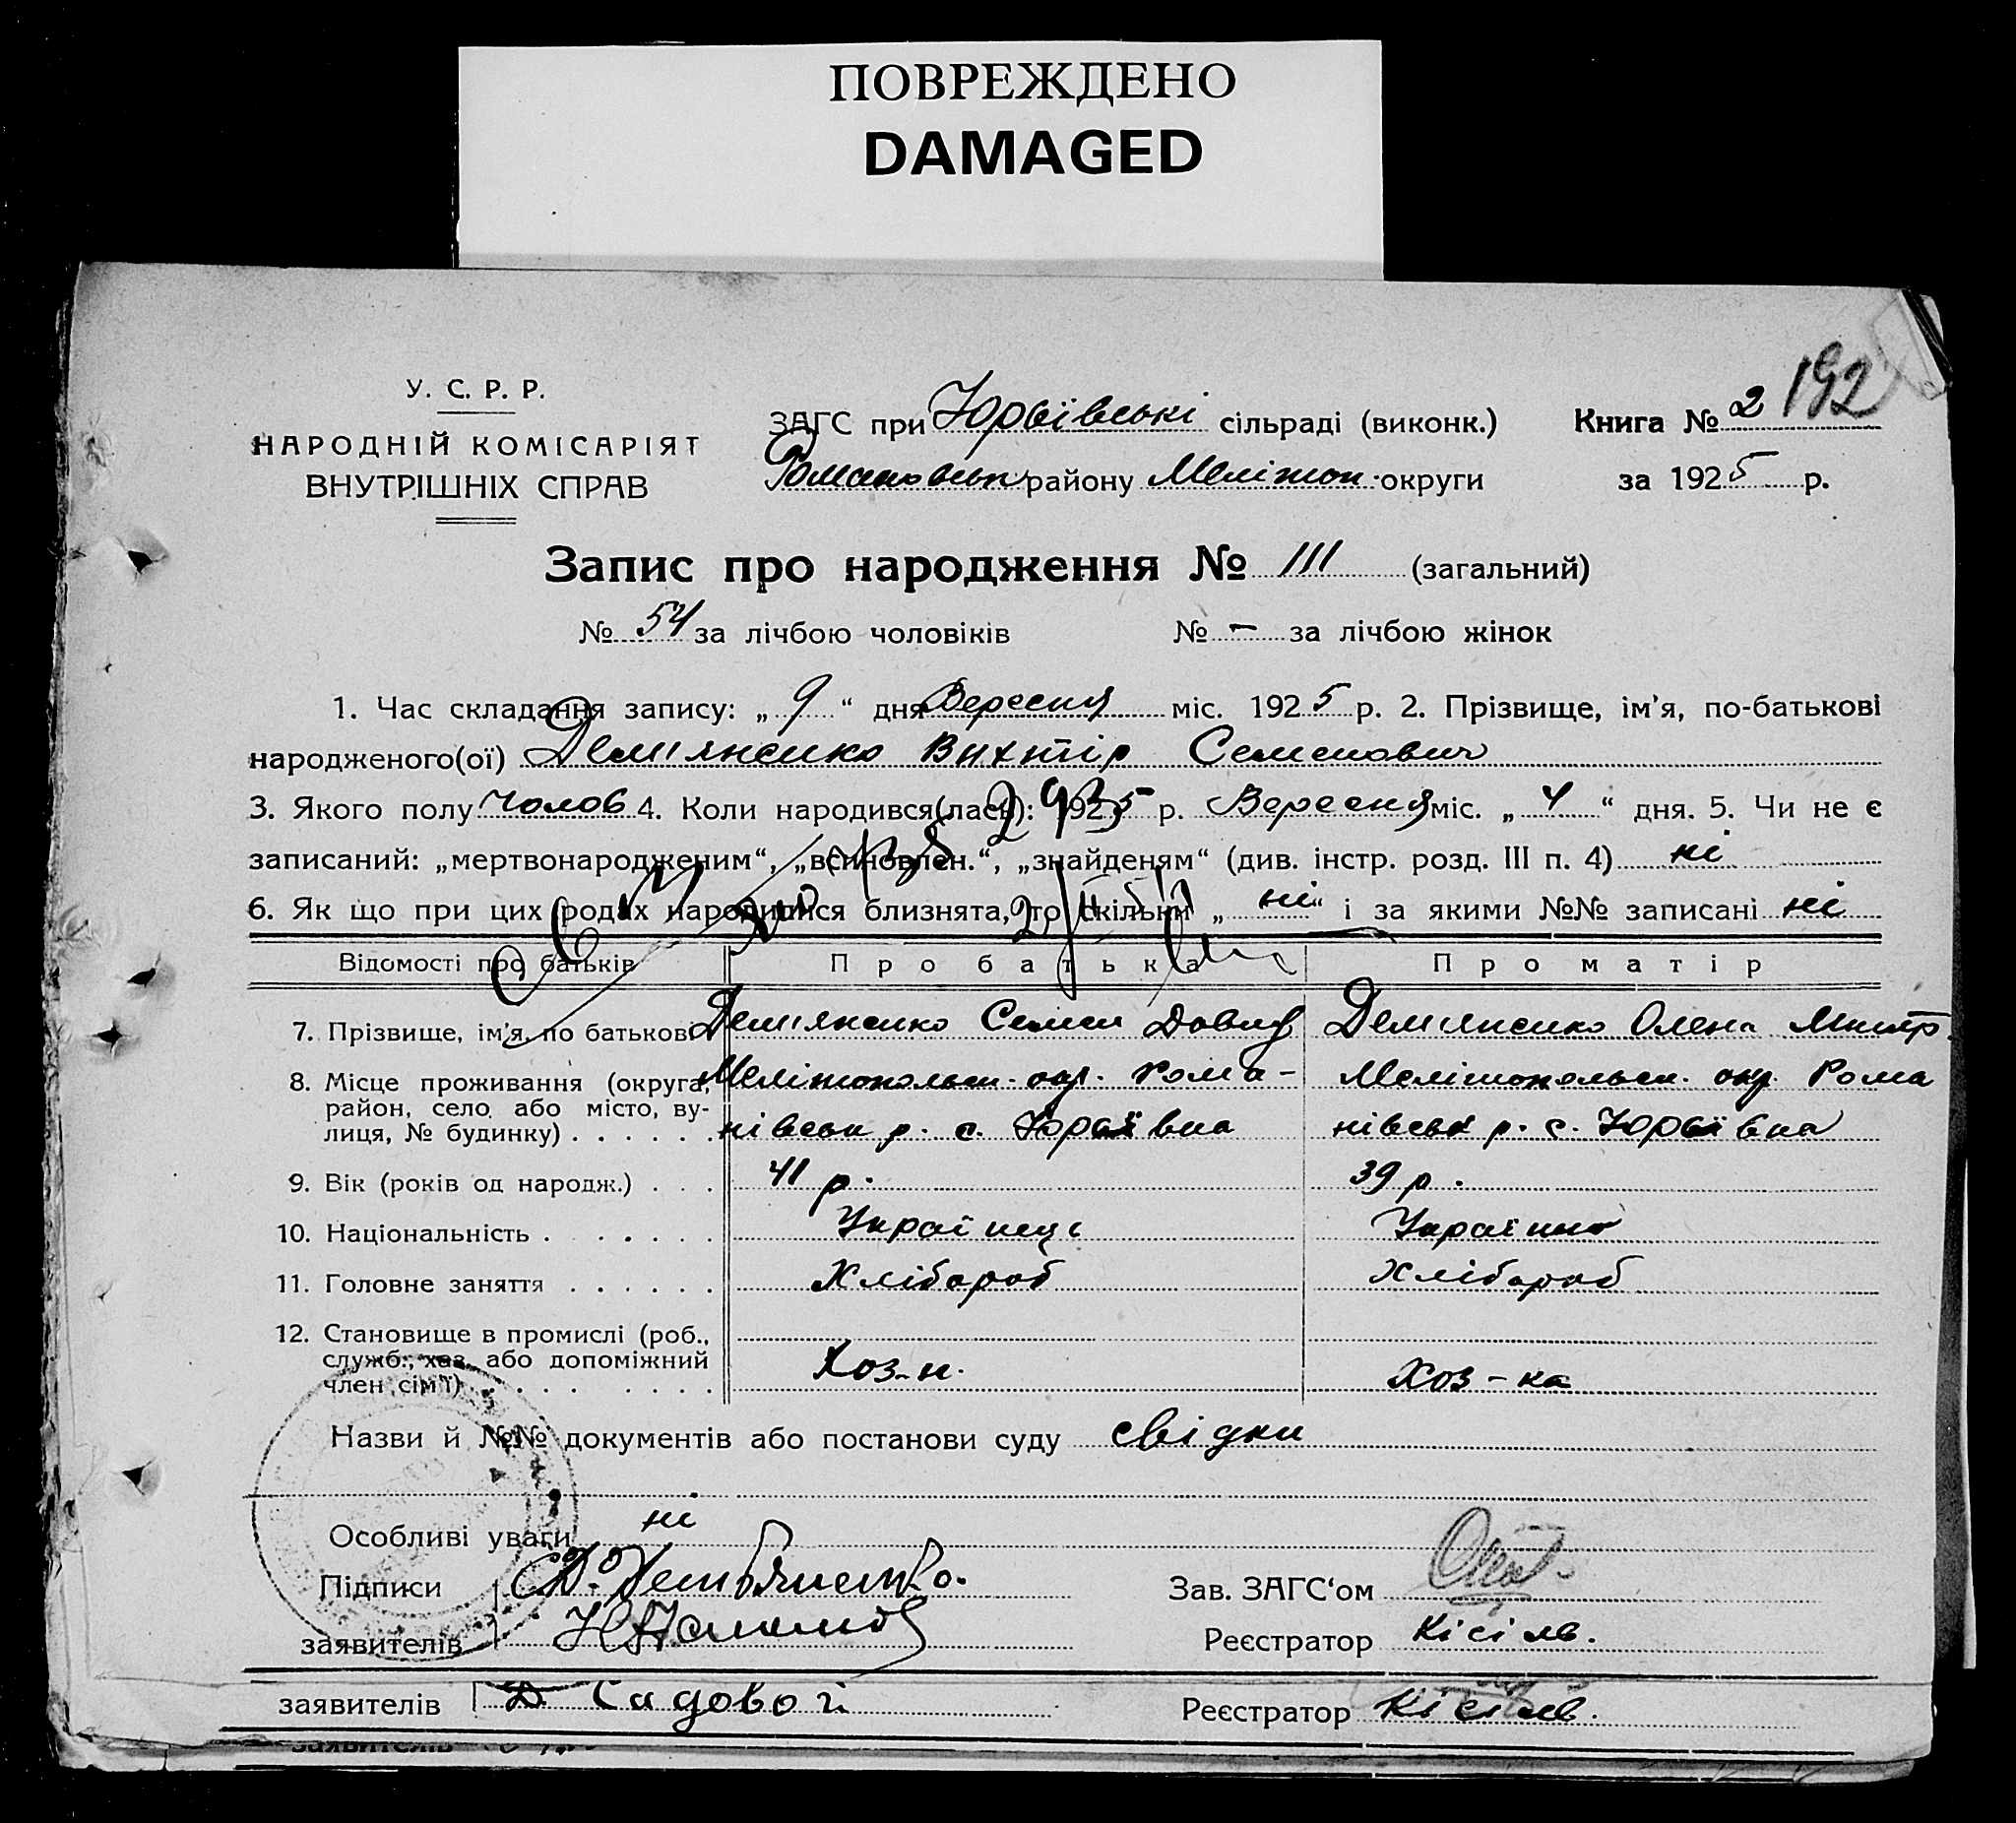 ПОВРЕЖДЕНО
DAMAGED
У. С. Р. Р.
НАРОДНІЙ КОМІСАРІЯТ
ВНУТРІШНІХ СПРАВ
ЗАГС при Юрʼївські сільраді (виконк.)
Романовськ району Мелітоп. округи
Книга № 2 192
за 1925 р.
Запис про народження № 111 (загальний)
№ 54 за лічбою чоловіків № – за лічбою жінок
1. Час складання запису: „ 9 “ дня Вересня міс. 1925 р. 2. Прізвище, ім'я, по-батькові
народженого(ої) Демʼяненко Вихтір Семенович
3. Якого полу Чолов 4. Коли народився(лась): 1925 р. Вересня міс. „ 4 “ дня. 5. Чи не є
записаний: „мертвонародженим“, „всиновлен.“, „знайденям“ (див. інстр. розд. III п. 4) ні
6. Як що при цих родах народилися близнята, то скільки „ ні “ і за якими №№ записані ні
Відомості про батьків Про батька Про матір
7. Прізвище, ім'я, по батькові Демʼяненко Семен Давид Демʼяненко Олена Дмитр.
8. Місце проживання (округа, Мелітопольськ. окр. Рома- Мелітопольськ. окр. Рома
район, село або місто, ву-
лиця, № будинку) . . . . . . нівськ р. с. Юрʼївка нівськ р. с. Юрʼївка
9. Вік (років од народж.) . . . 41 р. 39 р.
10. Національність . . . . . . Українець Українка
11. Головне заняття . . . . . . Хлібороб Хлібороб
12. Становище в промислі (роб.,
служб., хаз. або допоміжний
член сім'ї) . . . . . . . . . Хоз-н. Хоз-ка
Назви й №№ документів або постанови суду свідки
Особливі уваги ні
Підписи С.Д. Демьяненко. Зав. ЗАГС‘ом
заявителів Реєстратор Кісіль.
заявителів Д Садовой Реєстратор Кісіль.
заявителів